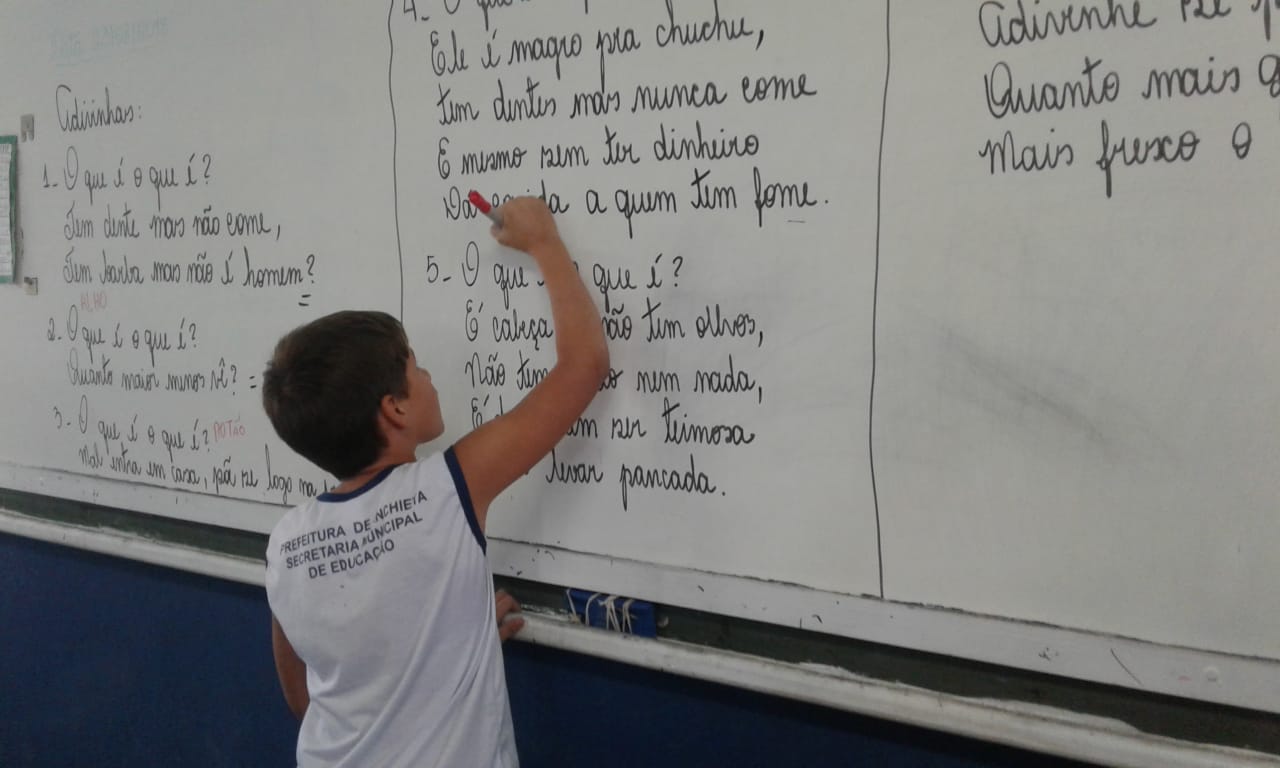 Adivinhas:
1- O que é o que é?
Tem dente mas não come,
Tem barba mas não é homem?
=
ALHO
2- O que é o que é?
Quanto maior menos vê? =
3- O que é o que é? BOTÃO
Mal entra em casa, põe se logo na
4- O que
Ele é magro pra chuchu,
tem dentes mas nunca come
E mesmo sem ter dinheiro
Dá a quem tem fome.
5- O que que é?
É cabeça não tem olhos,
Não tem nem nada,
ser teimosa
levar pancada.
Adivinhe se
Quanto mais
Mais fresco o
PREFEITURA DE ANCHIETA
SECRETARIA MUNICIPAL
DE EDUCAÇÃO